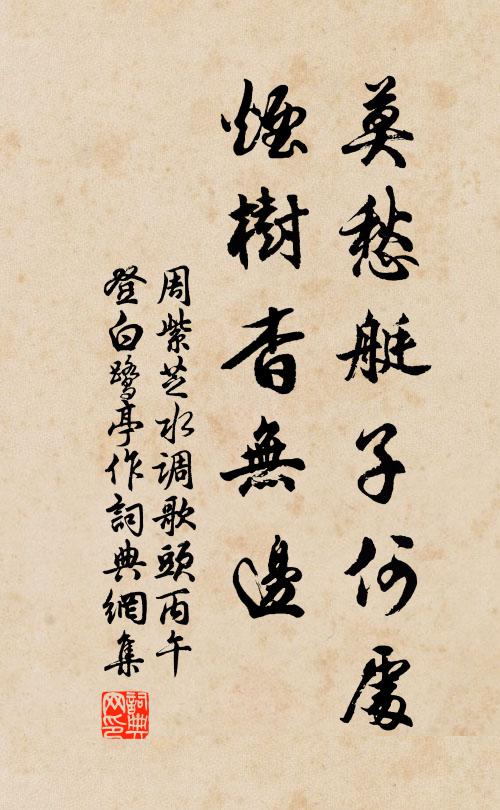 莫愁艇子何處
煙樹杳無邊
周紫芝水调歌頭丙午
登白鹭亭作詞典網集
詞典网印